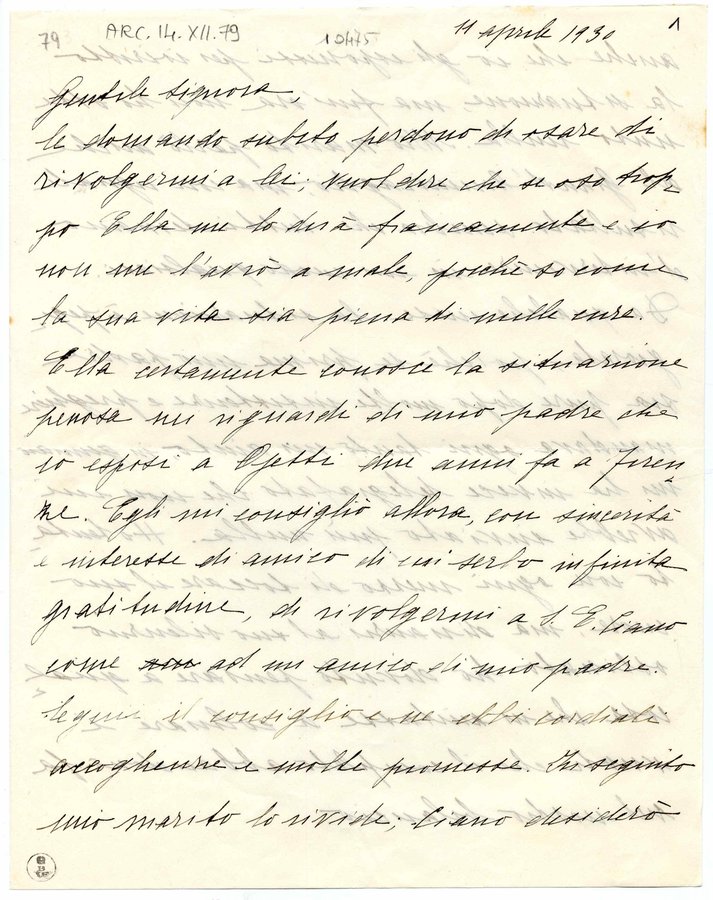 79
ARC. 14. XII. 79
10475
1
11 aprile 1930
Gentile Signora,
le domando subito perdono di osare di
rivolgermi a lei; vuol dire che se oso trop-
po Ella me lo dirà francamente e io
non me l'avrò a male, poichè so come
la sua vita sia piena di mille cure.
Ella certamente conosce la situazione
penosa nei riguardi di mio padre che
io esposi a Ojetti due anni fa a Firen-
ze. Egli mi consigliò allora, con sincerità
e interesse di amico di cui serbo infinita
gratitudine, di rivolgermi a S. E. Ciano
come ad un amico di mio padre.
Seguii il consiglio e ne ebbi cordiali
accoglienze e molte promesse. In seguito
mio marito lo rivide; Ciano desiderò